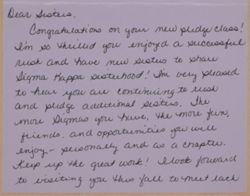 Dear Sisters,
Congratulations on your new pledge class!
I'm so thrilled you enjoyed a successful
rush and have new sisters to share
Sigma Kappa sisterhood! I'm very pleased
to hear you are continuing to rush
and pledge additional sisters. The
more Sigmas you have, the more fun,
friends, and opportunities you will
enjoy - personally and as a chapter.
Keep up the great work! I look forward
to visiting you this fall to meet each